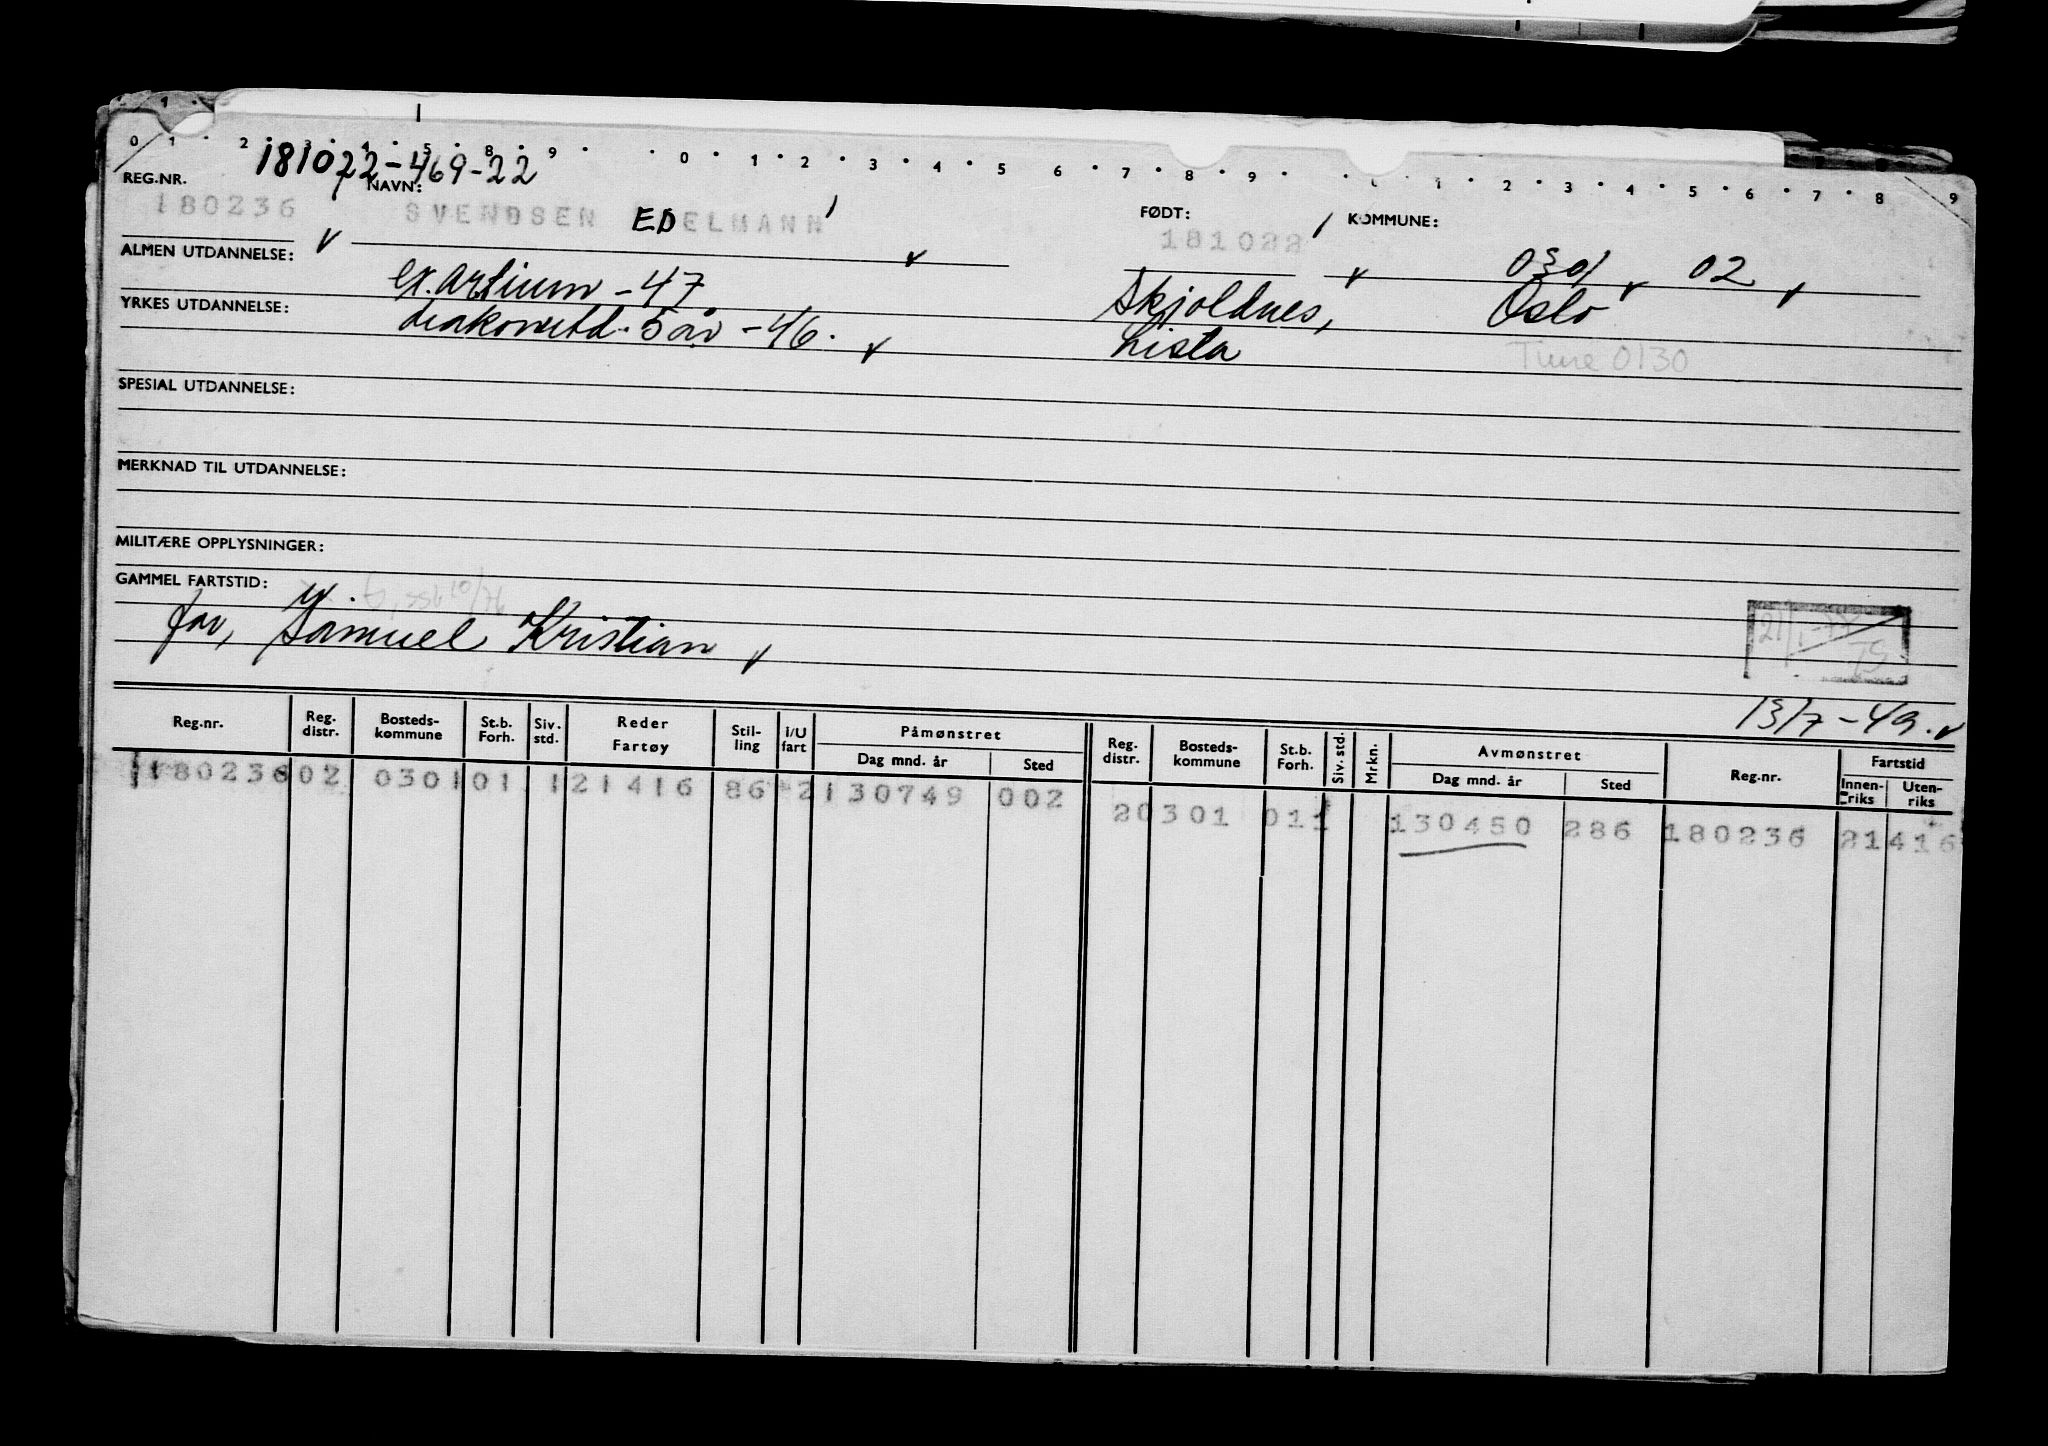 0 1 2 3 4 5 8 9 0 1 2 3 4 5 6 7 8 9 1 2 3 4 5 6 7 8 9
181022-469-22
REG.NR. NAVN: FØDT: KOMMUNE:
180236 SVENDSEN EDELMANN 181022 0301 02
ALMEN UTDANNELSE: ex. artium - 47 Skjoldnes, Oslo
YRKES UTDANNELSE: 5 år - 46. Lista Time 0130
SPESIAL UTDANNELSE:
MERKNAD TIL UTDANNELSE:
MILITÆRE OPPLYSNINGER:
GAMMEL FARTSTID:
far, Samuel Kristian
13/7-49.
Reg.nr. Reg. distr. Bosteds- kommune St.b. Forh. Siv. std. Reder Fartøy Stil- ling i/U fart Påmønstret Dag mnd. år Sted Reg. distr. Bosteds- kommune St.b. Forh. Siv. std. Mrkn. Avmønstret Dag mnd. år Sted Reg.nr. Fartstid Innen- riks Uten- riks
180236 02 0301 01 1 21416 86 2 130749 002
2 0301 011 130450 286 180236 21416